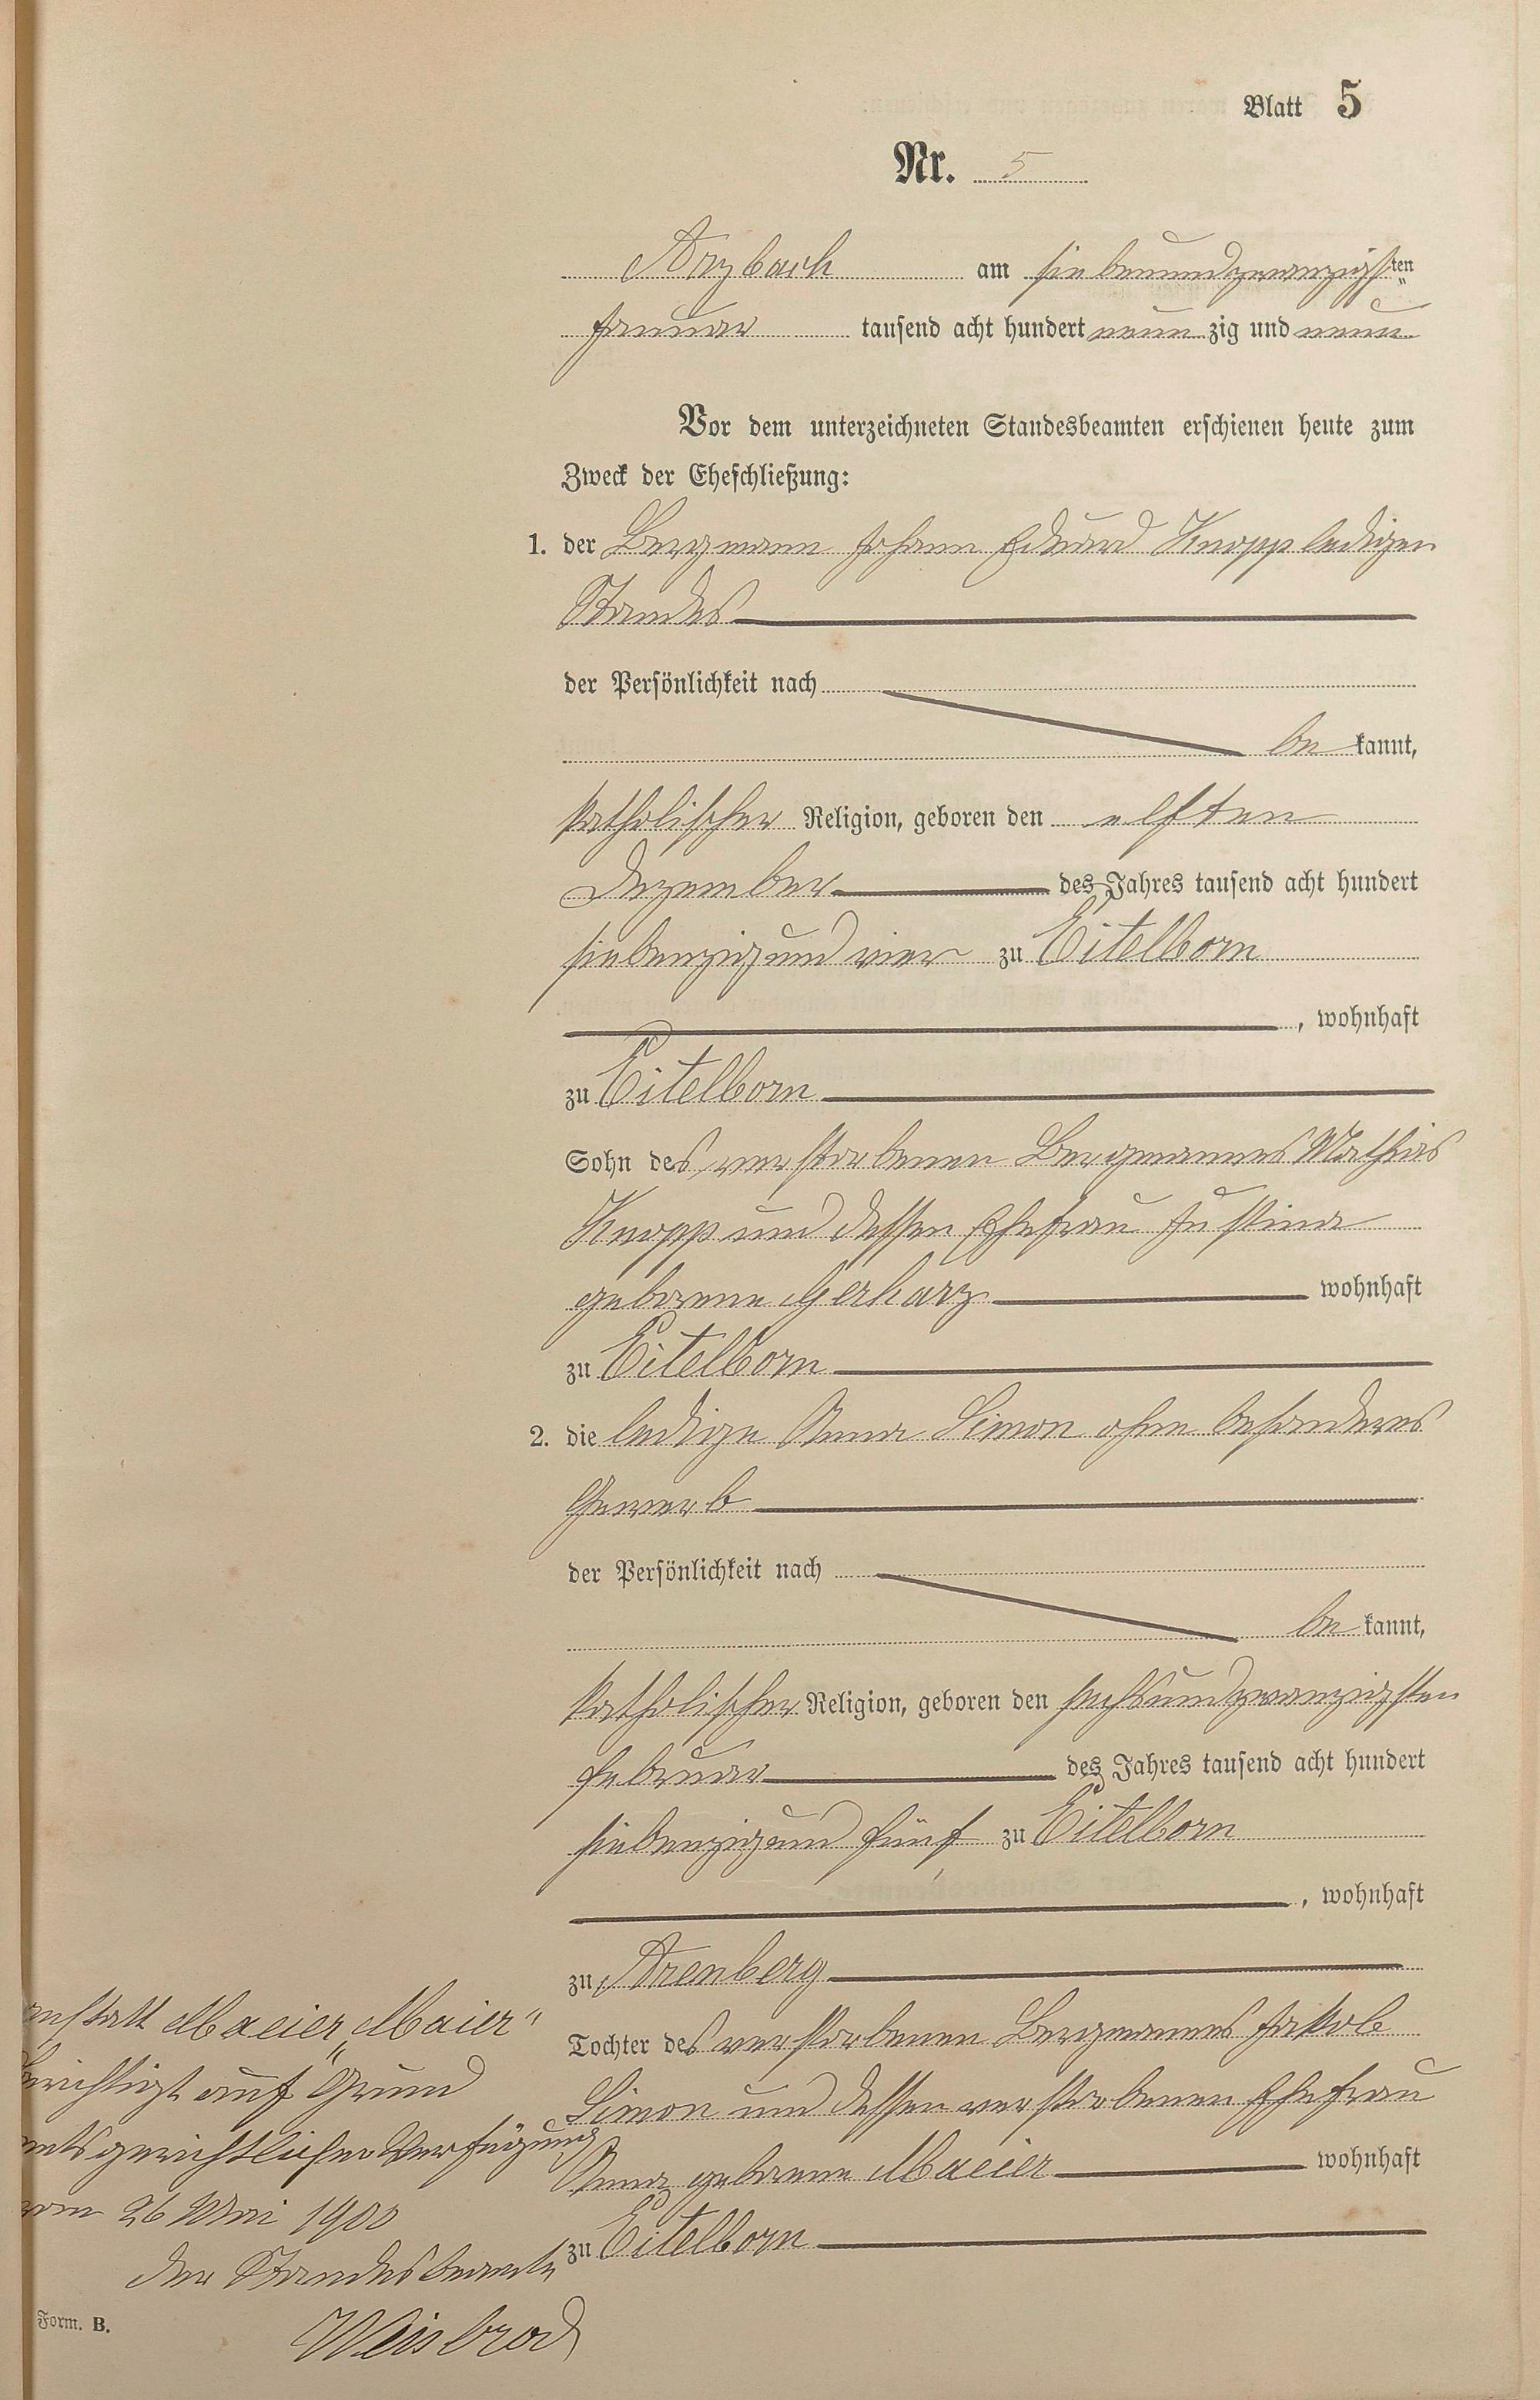 Blatt 5
Nr. 5
Arzbach am siebenundzwanzigsten
Januar tausend acht hundert neunzig und neun
Vor dem unterzeichneten Standesbeamten erschienen heute zum
Zweck der Eheschließung:
1. der Bergmann Johann Eduard Knopp ledigen
Standes
der Persönlichkeit nach
be kannt,
katholischer Religion, geboren den elften
Dezember des Jahres tausend acht hundert
siebenzig und vier zu Eitelborn
, wohnhaft
zu Eitelborn
Sohn des verstorbenen Bergmannes Mathias
Knopp und dessen Ehefrau Justina
geborene Gerharz wohnhaft
zu Eitelborn
2. die ledige Anna Simon ohne besonderes
Gewerb
der Persönlichkeit nach
be kannt,
katholischer Religion, geboren den sechsundzwanzigsten
Februar des Jahres tausend acht hundert
siebenzig und fünf zu Eitelborn
, wohnhaft
zu Arenberg
Tochter des verstorbenen Bergmannes Jakob
Simon und dessen verstorbenen Ehefrau
Anna geborene Maeier wohnhaft
zu Eitelborn
anstatt Maeier „Maier“
berichtigt auf Grund
amtsgerichtlicher Verfügung
vom 26 Mai 1900
Der Standesbeamte
Weisbrod
Form. B.